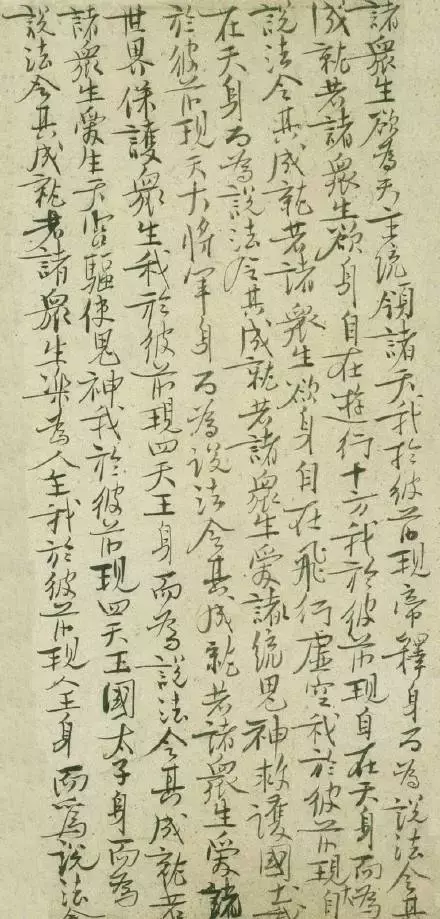 諸眾生欲為天主統領諸天我於彼前現帝釋身而為說法令其
成就若諸眾生欲身自在遊行十方我於彼前現身在天身而為
說法令其成就若諸眾生欲身自在飛行虛空我於彼前現大自
在天身而為說法令其成就若諸眾生愛諸統鬼神救護國土我
於彼前現天大將軍身而為說法令其成就若諸眾生愛統
世界保護眾生我於彼前現四天王身而為說法令其成就若
諸眾生愛生天宮驅使鬼神我於彼前現四天王國太子身而為
說法令其成就若諸眾生樂為人王我於彼前現人王身而為說法令